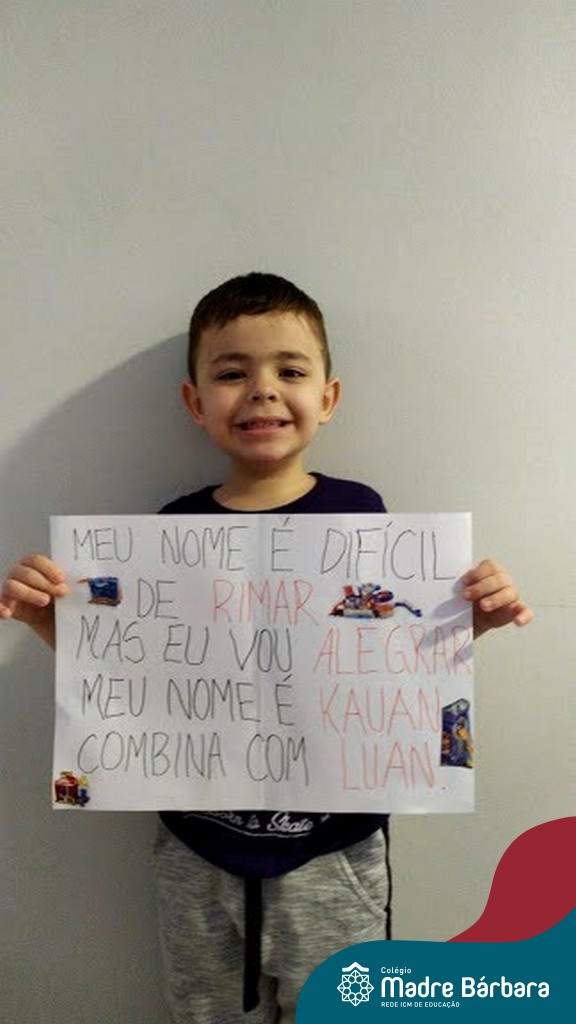 MEU NOME É DIFÍCIL
DE RIMAR
MAS EU VOU ALEGRAR
MEU NOME É KAUAN
COMBINA COM LUAN.
Born to Skate
Colégio
Madre Bárbara
REDE ICM DE EDUCAÇÃO